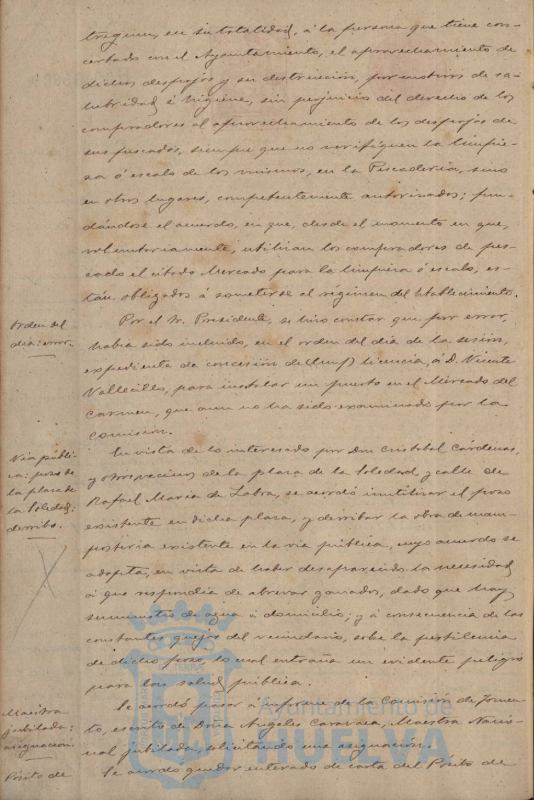 treguen, en su totalidad, á la persona que tiene con-
certado con el Ayuntamiento, el aprovechamiento de
dichos despojos y su destrucción, por motivos de sa-
lubridad é higiene, sin perjuicio del derecho de los
compradores al aprovechamiento de los despojos de
sus pescados, siempre que no verifiquen la limpie-
za ó escalo de los mismos, en la Pescadería, sino
en otros lugares, competentemente autorizados; fun-
dándose el acuerdo, en que, desde el momento en que,
voluntariamente, utilizan los compradores de pes-
cado el citado Mercado para la limpieza ó escalo, es-
tán obligados á someterse al régimen del Establecimiento.
Orden del
dia: error.
Por el Sr. Presidente, se hizo constar que por error,
había sido incluido, en el orden del día de la sesión,
expediente de concesión de licencia, á D. Vicente
Vallecillos, para instalar un puesto en el Mercado del
Carmen, que aun no ha sido examinado por la
Comisión.
Via públi-
ca: pozo de
la plaza de
la Soledad:
derribo.
En vista de lo interesado por Don Cristobal Cárdenas,
y otros vecinos de la plaza de la Soledad, y calle de
Rafael María de Labra, se acordó inutilizar el pozo
existente en dicha plaza, y derribar la obra de mam-
postería existente en la vía pública, cuyo acuerdo se
adopta, en vista de haber desaparecido la necesidad
á que respondía de abrevar ganados, dado que hay
suministro de agua á domicilio; y á consecuencia de las
constantes quejas del vecindario, sobre la pestilencia
de dicho pozo, lo cual entraña un evidente peligro
para la salud pública.
Maestra
jubilada:
asignación.
Se acordó pasar á informe de la Comisión de Fomen-
to, escrito de Doña Angeles Caravaca, Maestra Nacio-
nal jubilada, solicitando una asignación.
Pósito de
Se acordó quedar enterado de carta del Pósito de
Ayuntamiento de
HUELVA